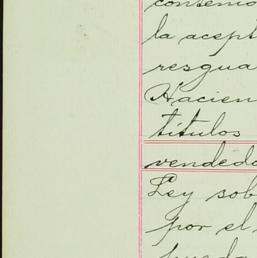 consenti
la acept
resgua
Hacien
títulos
vendedo
Ley sob
por el
pueda